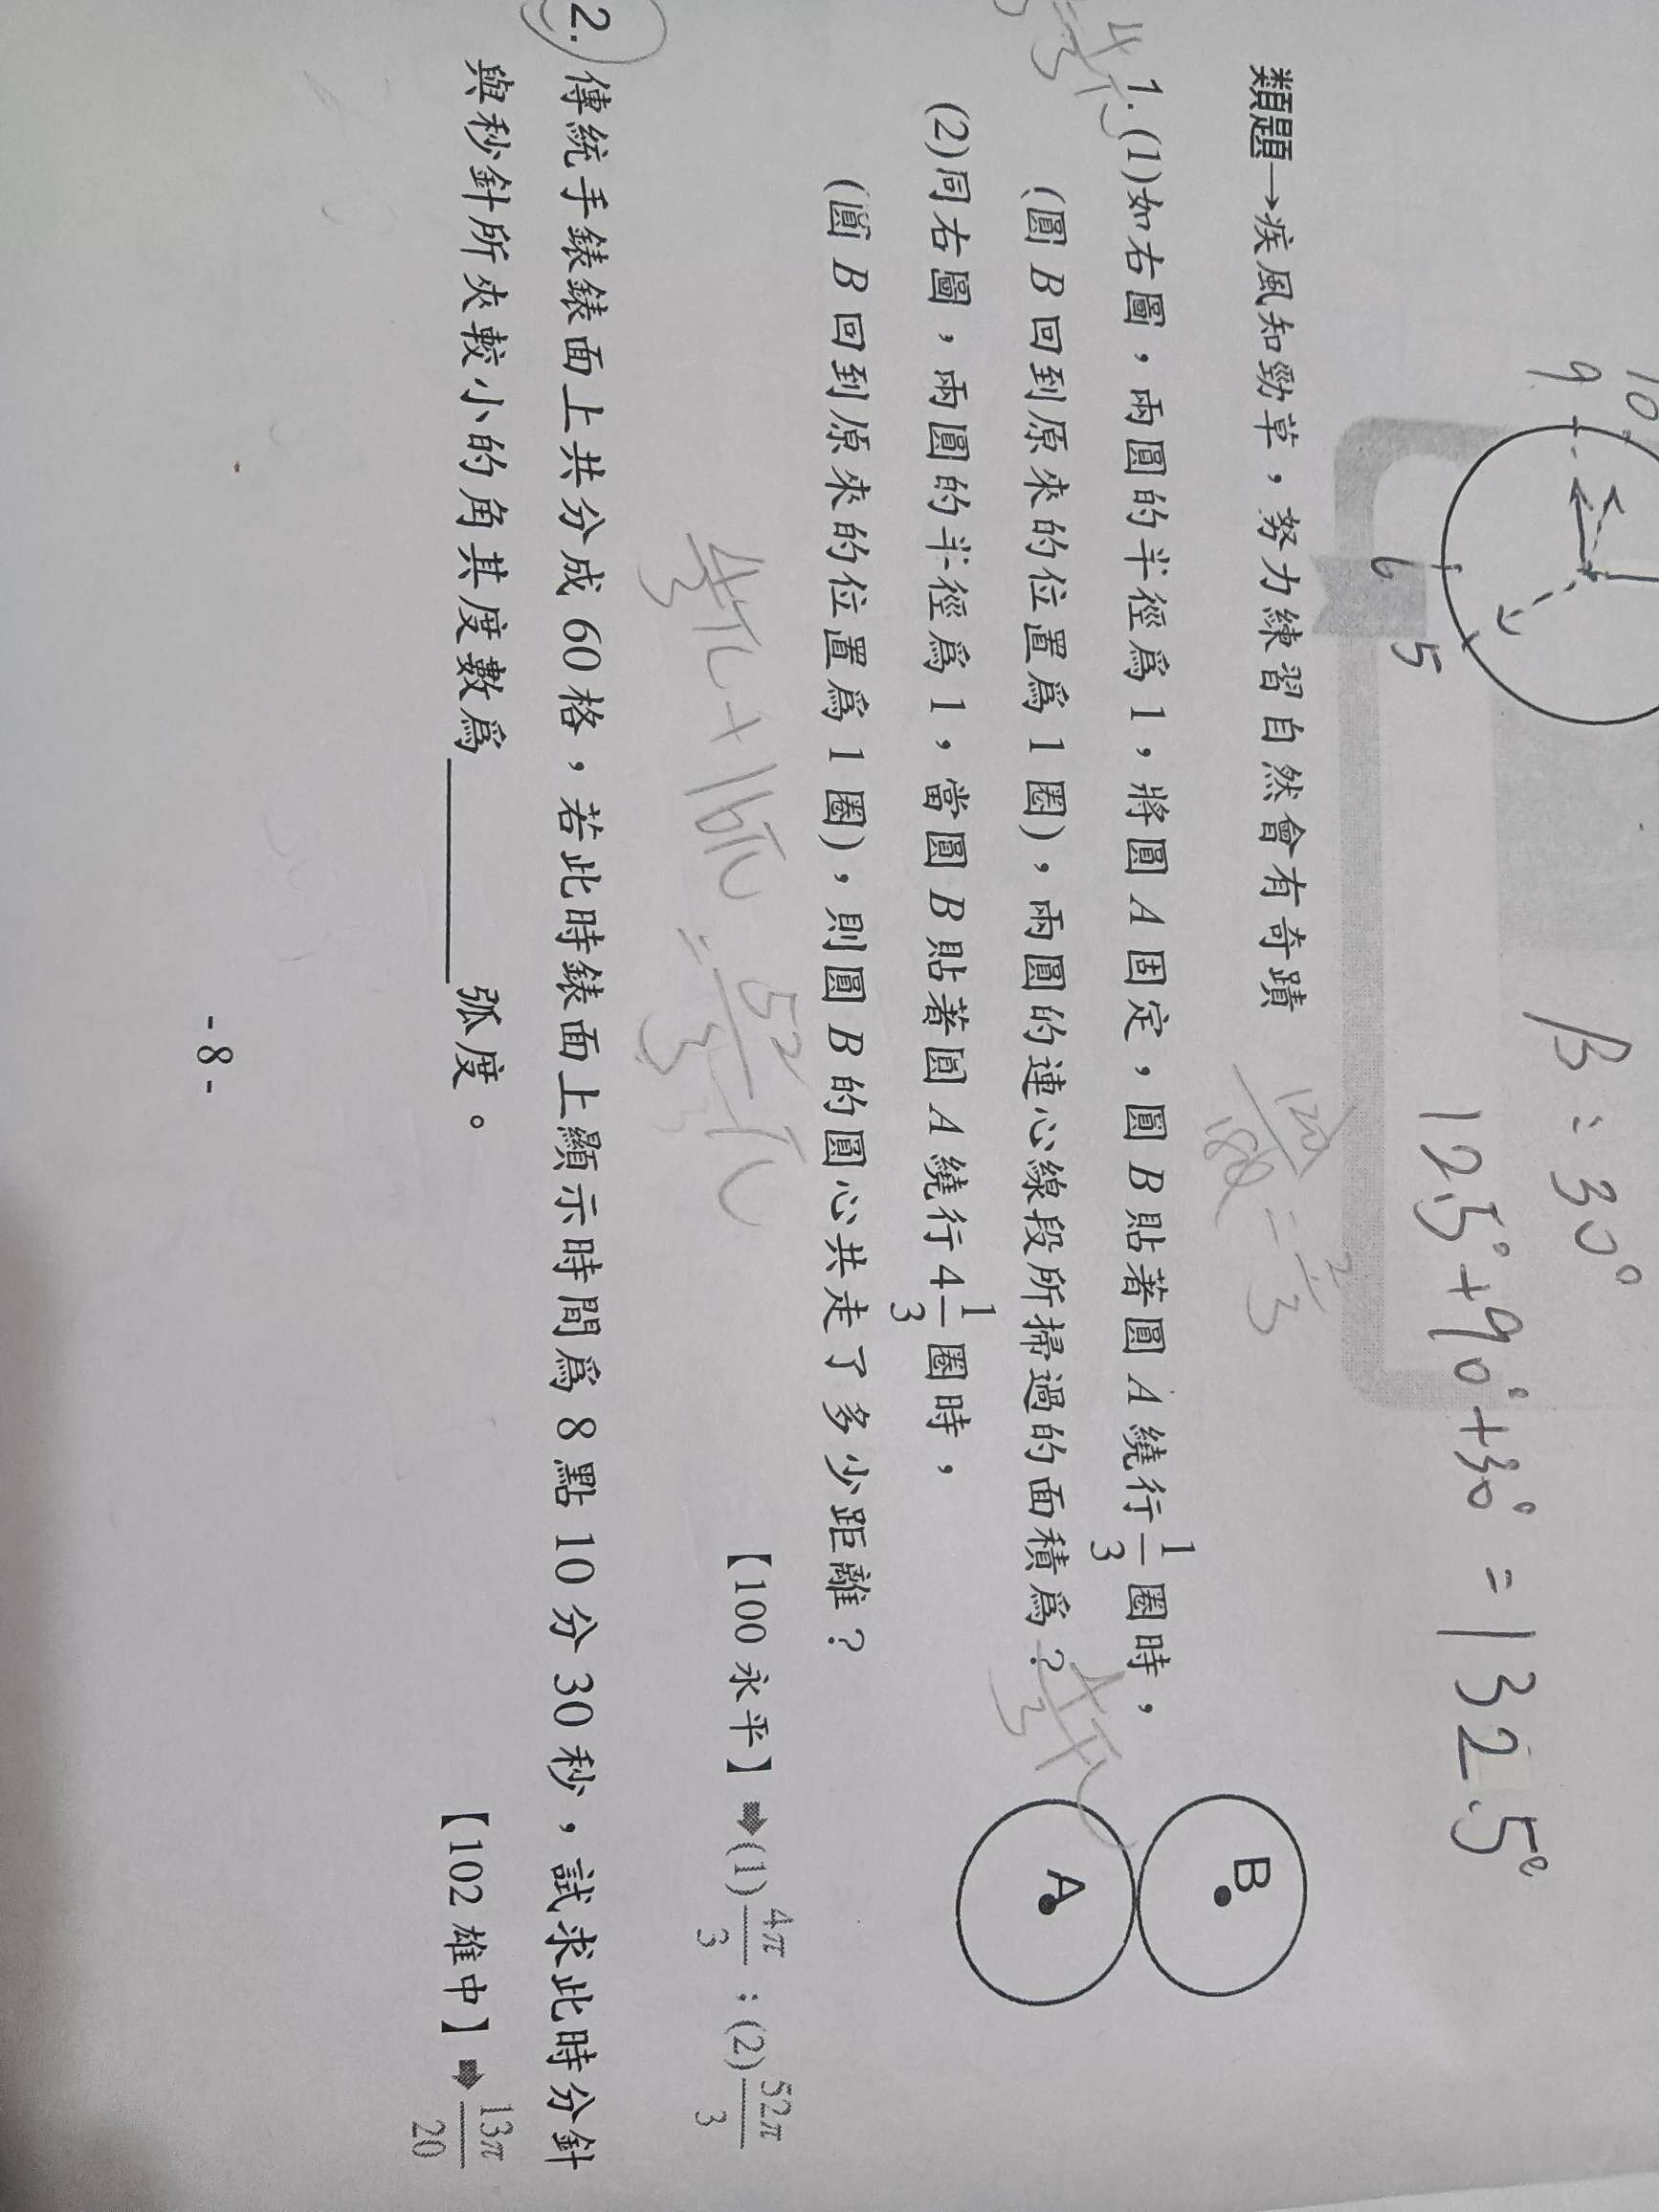 10
9
6
5
β：30°
12.5°+90°+30° = 132.5°
類題→疾風知勁草，努力練習自然會有奇蹟
120/180 = 2/3
1.(1)如右圖，兩圓的半徑為1，將圓A固定，圓B貼著圓A繞行1/3圈時，
(圓B回到原來的位置為1圈)，兩圓的連心線段所掃過的面積為？
4/3π
(2)同右圖，兩圓的半徑為1，當圓B貼著圓A繞行4 1/3圈時，
(圓B回到原來的位置為1圈)，則圓B的圓心共走了多少距離？
B
A
4/3π+16π = 52/3π
【100永平】➡(1)4π/3；(2)52π/3
2.傳統手錶錶面上共分成60格，若此時錶面上顯示時間為8點10分30秒，試求此時分針
與秒針所夾較小的角其度數為______弧度。
【102雄中】➡13π/20
-8-